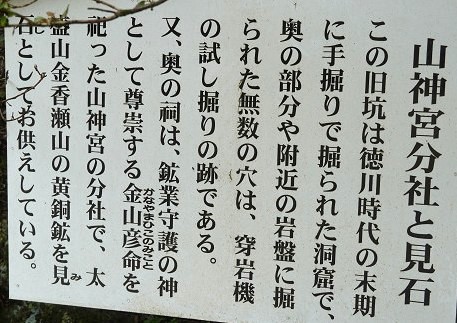 山神宮分社と見石
この旧坑は徳川時代の末期
に手掘りで掘られた洞窟で、
奥の部分や附近の岩盤に掘
られた無数の穴は、穿岩機
の試し掘りの跡である。
又、奥の祠は、鉱業守護の神
として尊崇する金山彦命を
かなやまひこのみこと
祀った山神宮の分社で、太
盛山金香瀬山の黄銅鉱を見
み
石としてお供えしている。
し